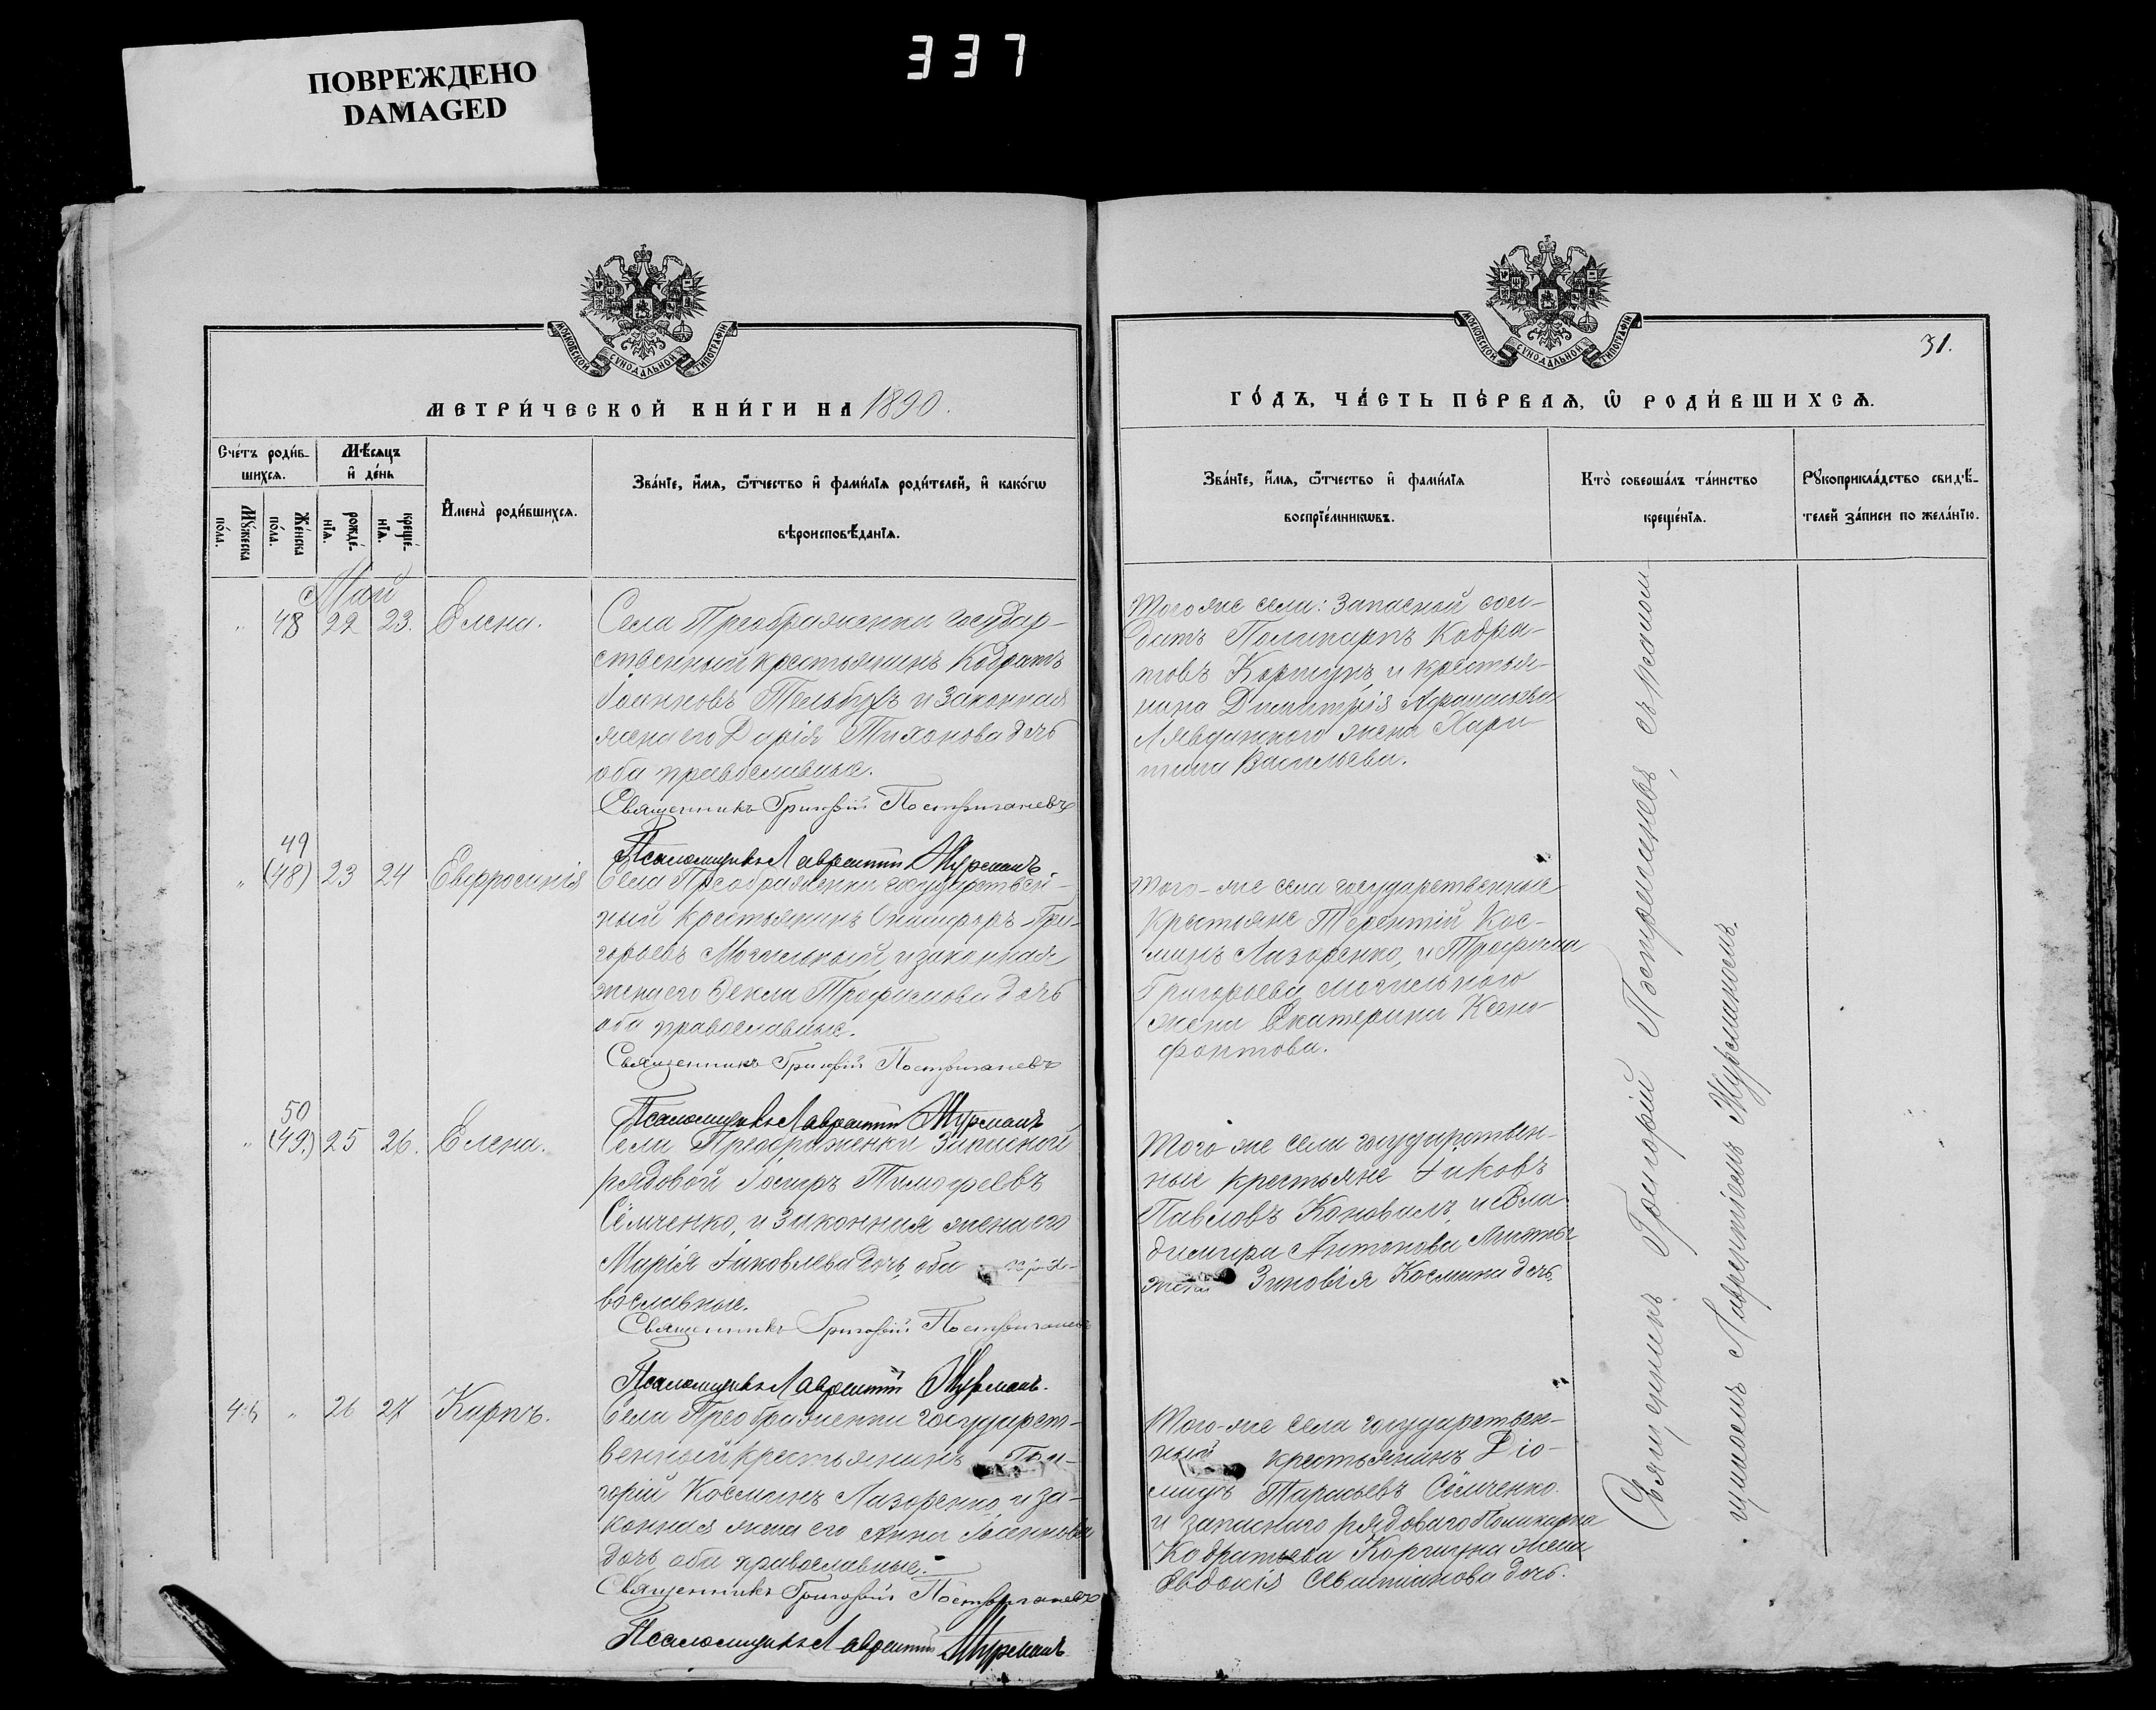 ПОВРЕЖДЕНО
DAMAGED
337
МОСКОВСКОЙ СУНОДАЛЬНОЙ ТИПОГРАФІИ
МЕТРИ́ЧЕСКОЙ КНИ́ГИ НА 1890.
Сче́тъ роди́в-
шихсѧ.
Мѣ́сѧцъ
и҆ де́нь
Мꙋ́жеска
по́ла.
Же́нска
по́ла.
рожде́-
нїѧ.
креще́-
нїѧ.
И҆мена̀ роди́вшихсѧ.
Зва́нїе, и҆́мѧ, ѻ҆́тчество и҆ фами́лїѧ роди́телей, и҆ како́гѡ
вѣроисповѣ́данїѧ.
Май
" 48 22 23. Елена.
Села Преображенки государ-
ственный крестьянинъ Кодратъ
Іоанновъ Тельбухъ и законная
жена его Дарія Тихонова дочь
оба православные.
Священникъ Григорій Постригачевъ
Псаломщикъ Лаврентій Журманъ.
49
" (48) 23 24 Евфросинія
Села Преображенки государствен-
ный крестьянинъ Онисифоръ Гри-
горьевъ Могильный и законная
жена его Фекла Трофимова дочь
оба православные.
Священникъ Григорій Постригачевъ
Псаломщикъ Лаврентій Журманъ
50
" (49.) 25 26. Елена.
Села Преображенки запасной
рядовой Тимофеевъ
Сёмченко, и законная жена его
Марія Іаковлева дочь, оба пра-
вославные.
Священникъ Григорій Постригачевъ
Псаломщикъ Лаврентій Журманъ.
" 26 27 Карпъ.
Села Преображенки государст-
венный крестьянинъ Гри-
горій Косминъ Лазоренко, и за-
конная жена его Анна Іоаннова
дочь оба православные.
Священникъ Григорій Постригачевъ
Псаломщикъ Лаврентій Журманъ
МОСКОВСКОЙ СУНОДАЛЬНОЙ ТИПОГРАФІИ
31.
ГО́ДЪ, ЧА́СТЬ ПЕ́РВАѦ, Ѡ҆ РОДИ́ВШИХСѦ.
Зва́нїе, и҆́мѧ, ѻ҆́тчество и҆ фами́лїѧ
воспрїе́мникѡвъ.
Кто̀ соверша́лъ та́инство
креще́нїѧ.
Рꙋкоприкла́дство свидѣ́-
телей за́писи по жела́нїю.
Того же села: запасный сол-
датъ Поликарпъ Кодра-
товъ Коршунъ, и крестья-
нина Димитрія
жена Хари-
тина Васильева.
Того-же села государственные
крестьяне Терентій Кос-
минъ Лазоренко, и Трофима
Григорьева Могильного
жена Екатерина Ксено-
фонтова.
Того же села государствен-
ные крестьяне Іаковъ
Павловъ Коновалъ, и Вла-
димира Антонова
жена Зиновія Космина дочь.
Того-же села государствен-
ный крестьянинъ Діо-
мидъ Тарасьевъ Сёмченко.
и запаснаго рядоваго Поликарпа
Кодратьева Коршуна жена
Евдокія Севастіанова дочь.
Священникъ Григорій Постригачевъ, съ псалом-
щикомъ Лаврентіемъ Журманомъ.